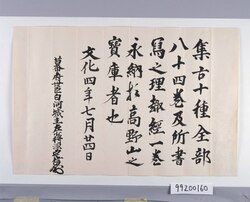 集古十種全部
八十四巻及所書
寫之理趣經一巻
永納於高野山之
寶庫者也
文化四年七月廿四日
幕府世臣白河城主左
99200160